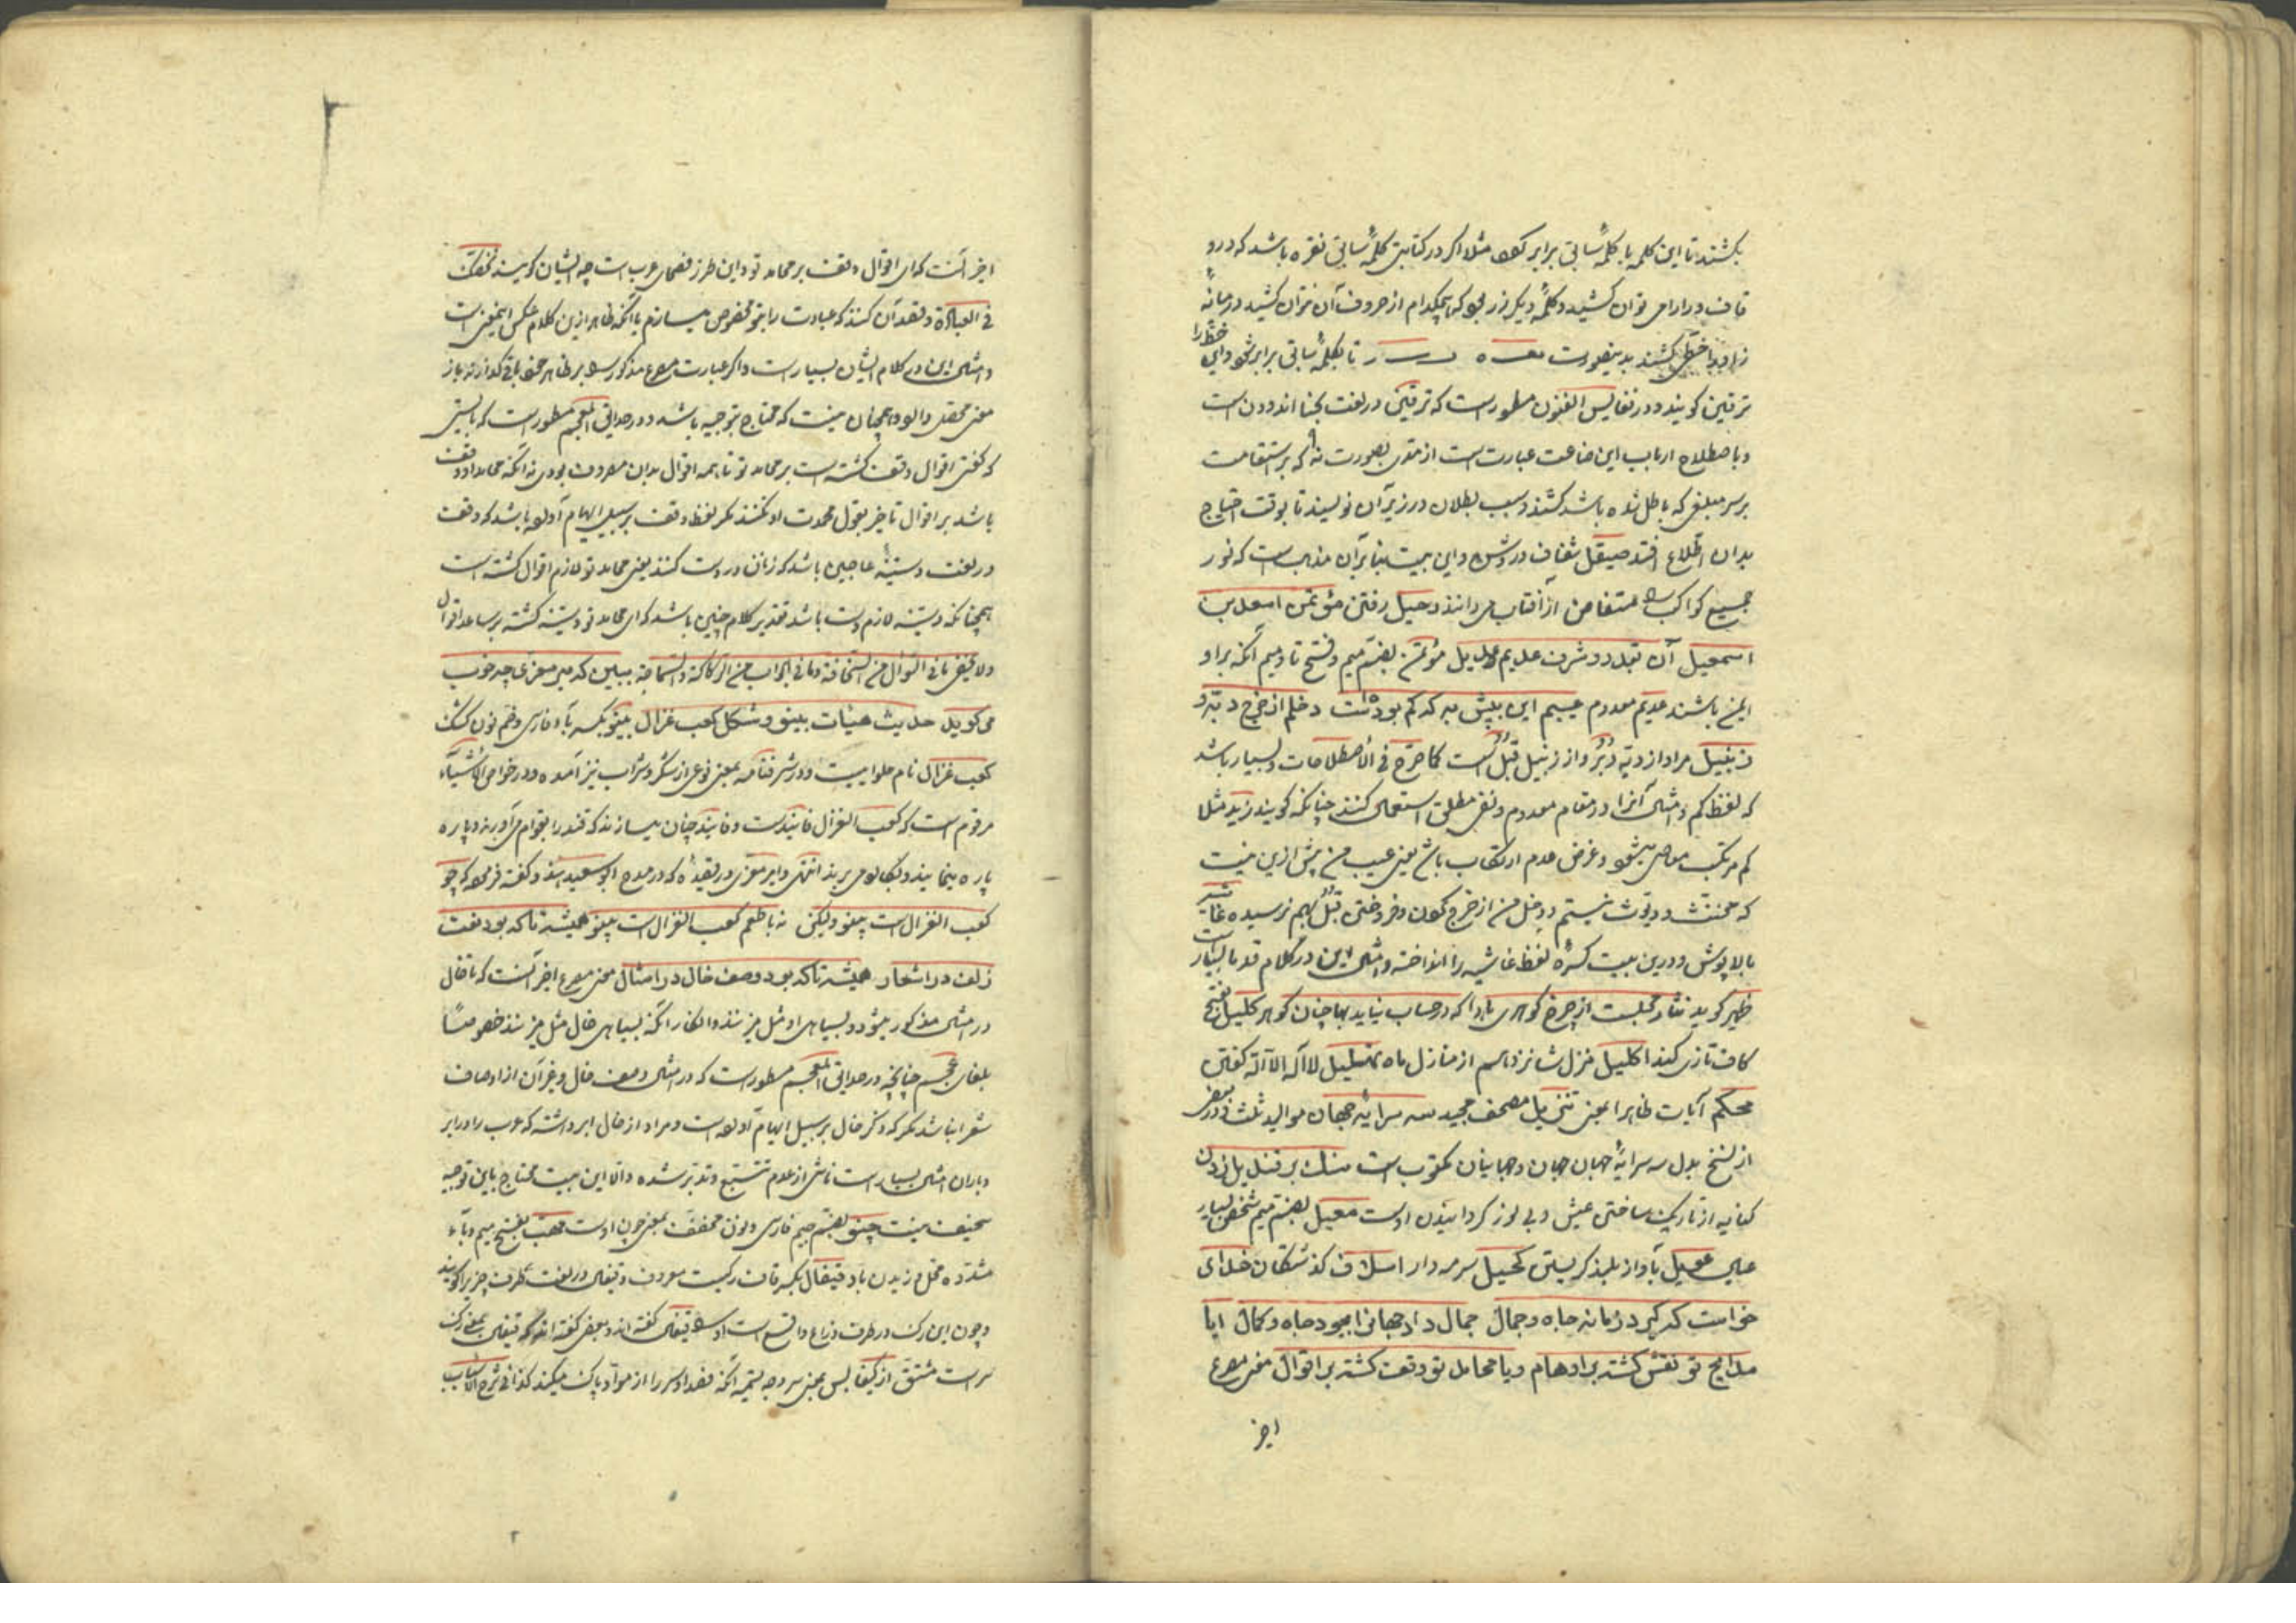 بکشند تا این کلمه با کلمهٔ سابق برابر شود مثلا اکر در کتابتی کلمهٔ سابق نقره باشد که درو
قاف و را را می توان کشید و کلمهٔ دیکر زر بود که هیچکدام از حروف آن نتوان کشید در میانهٔ
زا و را خطی کشند بدینصورت نقـــره زـــر تا بکلمهٔ سابق برابر شود و این خط را
ترقین کویند و در نفایس الفنون مسطور است که ترقین در لغت بحنا اندودن است
و باصطلاح ارباب این صناعت عبارت است از مدی بصورت نه که بر استقامت
بر سر مبلغی که باطل شده باشد کشند و سبب بطلان در زیر آن نویسند تا بوقت احتیاج
بدان اطلاع افتد صیقل شفاف و روشن و این بیت بنا بر آن مذهب است که نور
جمیع کواکب را مستفاض از آفتاب میدانند رحیل رفتن مؤتمن اسعد بن
اسمعیل آن بقدر و شرف عدیم عدیل مؤتمن بضم میم و فتح تا و میم آنکه برا و
ایمن باشند عدیم معدوم عیبم این بیش نه که کم بوده است دخلم از خرج دبّه و
زنبیل مراد از دبّه دُبُر و از زنبیل قُبُل است کما صرّح فی الاصطلاحات و بسیار باشد
که لفظ کم و امثال آنرا در مقام معدوم و نفی مطلق استعمال کنند چنانکه کویند زید مثلا
کم مرتکب معاصی میشود و غرض عدم ارتکاب باشد یعنی عیب من بیش ازین نیست
که مخنث و دیّوث نیستم و دخل من از خرج کون و فروختن قُبُل بهم نرسیده غاشیه
بالاپوش و درین بیت کسرهٔ لفظ غاشیه را انداخته و امثال این در کلام قدما بسیار است
ظهیر کوید نثار مجلست از چرخ کوهری بادا که در حساب نیاید بها چنان کوهر کلیل بفتح
کاف تازی کند اکلیل منزل شانزدهم از منازل ماه تهلیل لا اله الا الله کفتن
محکم آیات ظاهر المعنی تنزیل مصحف مجید سه سرایهٔ جهان موالید ثلث و در بعضی
از نسخ بدل سه سرایهٔ جهان جهان و جهانیان مکتوب است سنک بر قندیل زدن
کنایه از تاریک ساختن عیش و بی نور کردانیدن اوست معیل بضم میم شخص بسیار
عیال عویل بآواز بلند کریستن کحیل سرمه دار اسلاف کذشتکان خدای
خواست که کیرد زمانه جاه و جمال جمال داد جهانرا بجود جاه و کمال ایا
مدایح تو نقش کشته بر اوهام و یا محامد تو وقف کشته بر اقوال معنی مصرع
اخر
اخر آنست که ای اقوال وقف بر محامد تو و این طرز فصحای عرب است چه ایشان کویند نخصّک
فی العبادة و قصد آن کنند که عبادت را بتو مخصوص میسازم با آنکه ظاهر ازین کلام عکس اینمعنی است
و امثال این در کلام ایشان بسیار است و اکر عبارت مصرع مذکور را بر ظاهر خود باقی کذارند باز
معنی محصلی دارد و همچنان نیست که محتاج بتوجیه باشد و در حدایق المعجم مسطور است که بایستی
که کفتی اقوال وقف کشته است بر محامد تو تا همه اقوال بدان مصروف بودی نه آنکه محامد او وقف
باشد بر اقوال تا خیر بقول محمدت او نکنند مکر لفظ وقف بر سبیل ایهام آورده باشد که وقف
در لغت دستینهٔ عاجین باشد که زنان در دست کنند یعنی محامد تو لازم اقوال کشته است
همچنانکه دستینه لازم دست باشد تقدیر کلام چنین باشد که ای محامد تو دستینه کشته بر ساعد اقوال
و لا یخفی ما فی السؤال من السخافة و ما فی الجواب من الرکاکة و السماجة ببین که میر معزی چه خوب
می کوید حدیث هیئات بینو و شکل کعب غزال بینو بکسر باء فارسی و ضم نون کشک
کعب غزال نام حلوا ییست و در شرفنامه بمعنی نوعی از شکر و شراب نیز آمده و در خواص الاشیاء
مرقوم است که کعب الغزال فانیدست و فانید چنان میسازند که قند را بقوام می آورند و پاره
پاره مینمایند و بکار میبرند انتهی و امیر معزی در قصیدهٔ که در مدح ابو سعید هندو کفته فرموده که چو
کعب الغزال است پینو ولیکن نه با طعم کعب الغزال است پینو همیشه تا که بود نعت
زلف در اشعار همیشه تا که بود وصف خال در امثال معنی مصرع اخر آنست که تا خال
در مثال مذکور میشود و بسیاهی او مثل میزنند و انکار آنکه بسیاهی خال مثل میزنند خصوصًا
بلغای عجم چنانچه در حدایق المعجم مسطور است که در امثال وصف خال و غیر آن از اوصاف
شعرا نباشد مکر که ذکر خال بر سبیل ایهام آورده است و مراد از خال ابر داشته که عرب را در ابر
و باران امثال بسیار است ناشی از عدم تتبع و تدبر شده و الا این بیت محتاج باین توجیه
سخیف نیست چنو بضم جیم فارسی و نون مخفف بمعنی چون اوست مهب بفتح میم و باء
مشدّده محل وزیدن باد قیفال بکسر قاف رکیست معروف و قیفال در لغت طرف چیز را کویند
و چون این رک در طرف ذراع واقع است او را قیفال کفته اند و بعضی کفته اند که قیفال بمعنی رک
سر است مشتق از کیفالس بمعنی سر وجه تسمیه آنکه فصد او سر را از مواد پاک میکند کذا فی شرح الاسباب